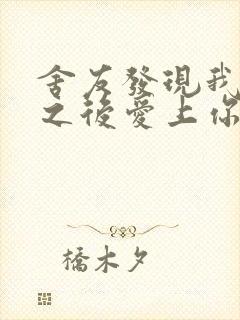 舍友發現我
之後愛上你
橋木夕